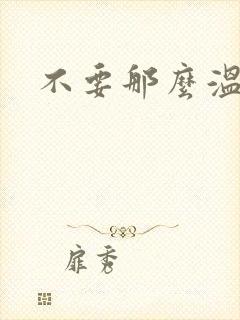 不要那麼溫
扉秀